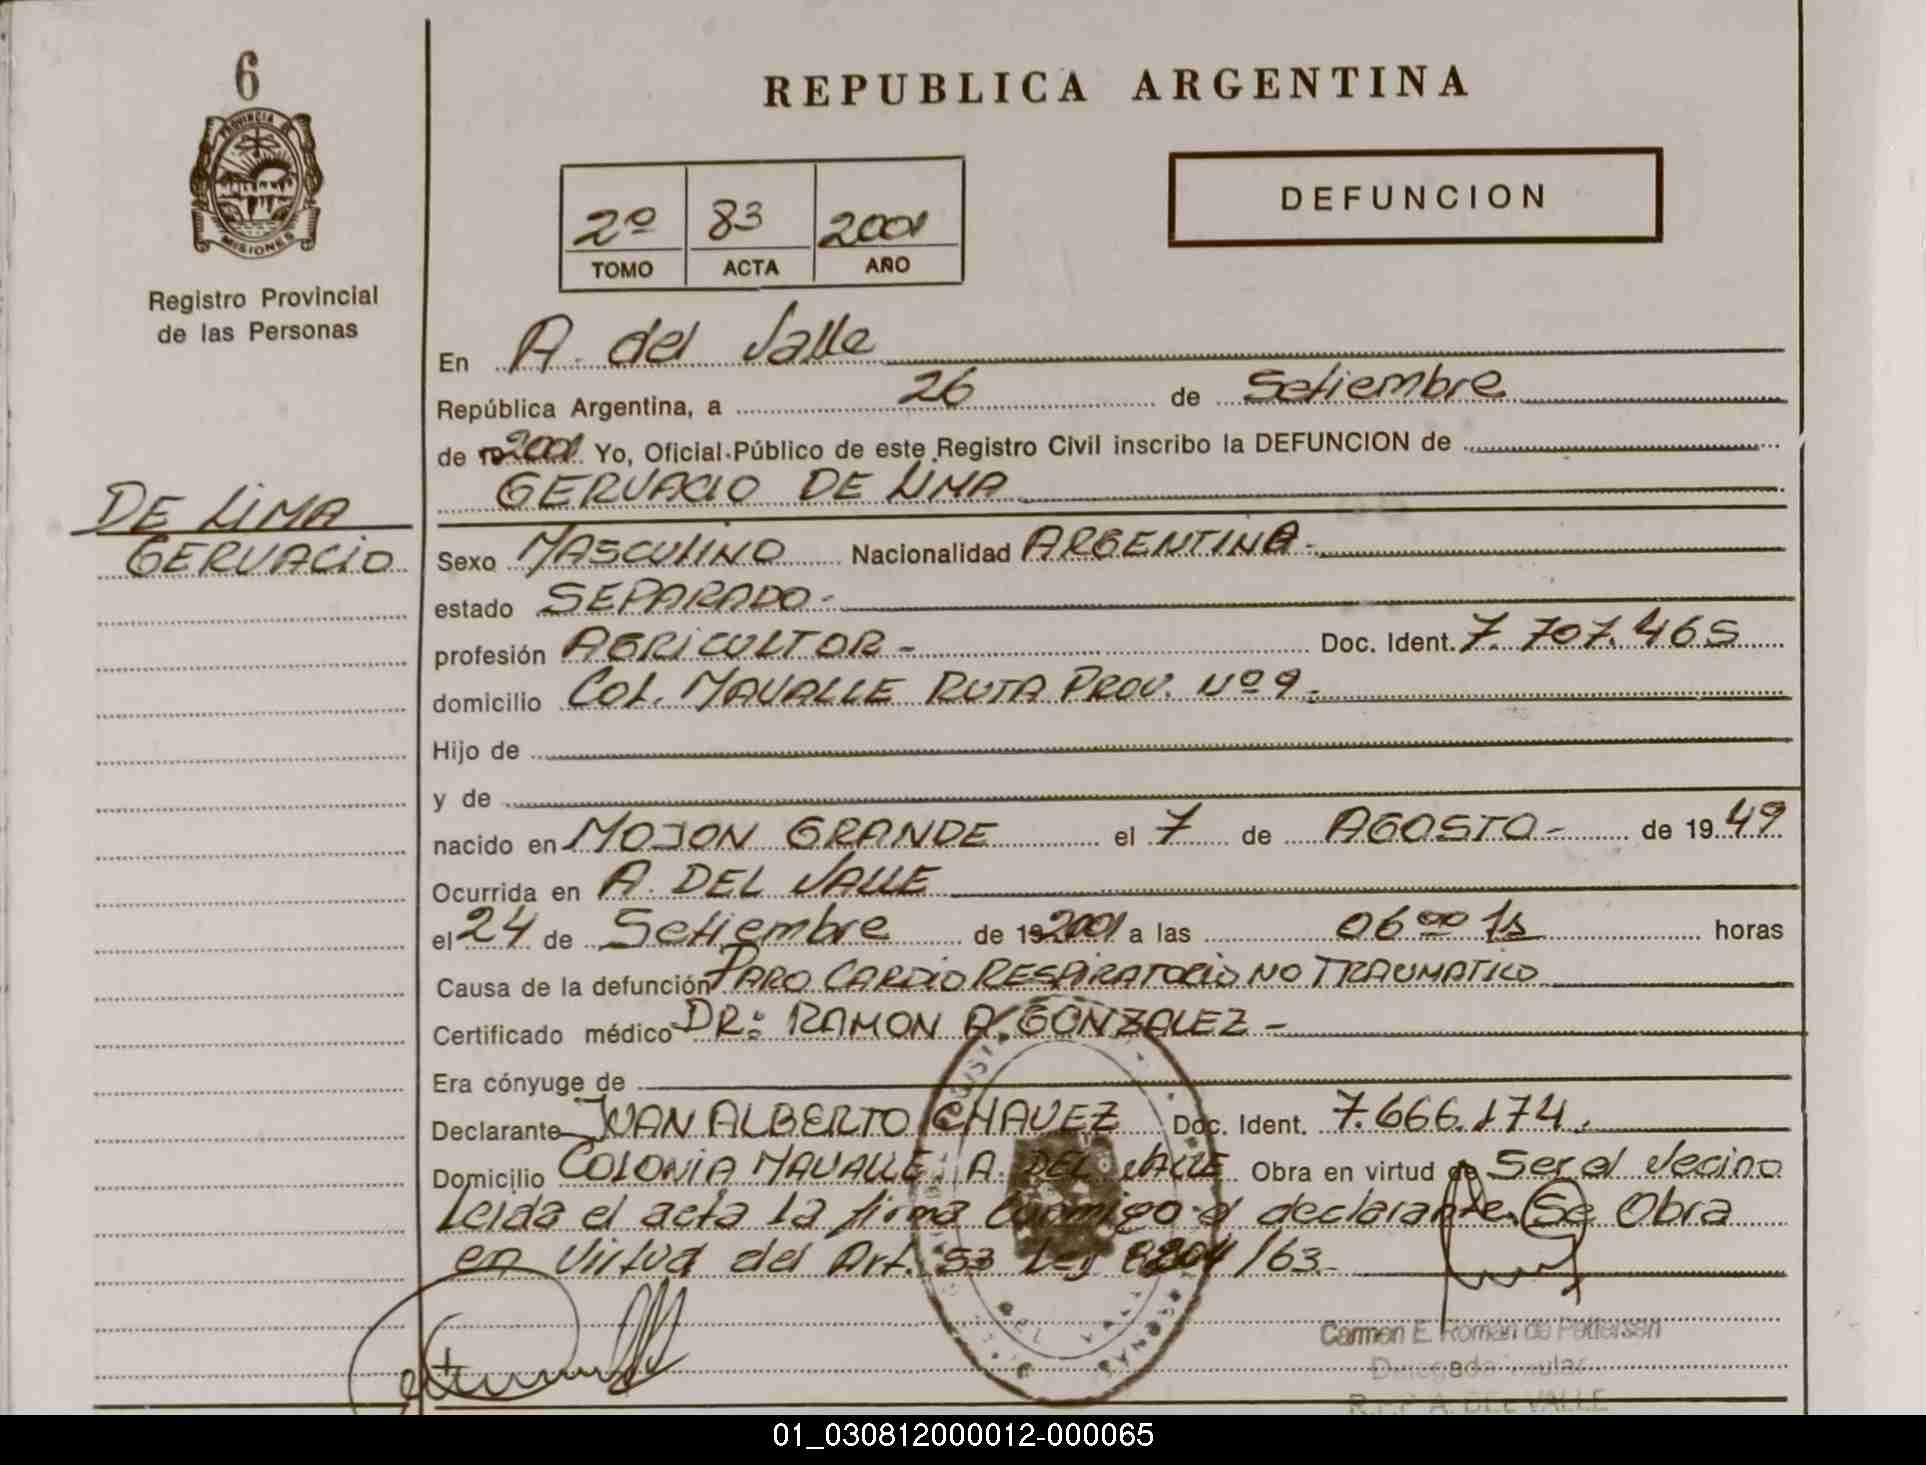 6
PROVINCIA DE
MISIONES
Registro Provincial
de las Personas
DE LIMA
GERVACIO
REPUBLICA ARGENTINA
2º 83 2001
TOMO ACTA AÑO
DEFUNCION
En A. del Valle
República Argentina, a 26 de Setiembre
de 2001 Yo, Oficial Público de este Registro Civil inscribo la DEFUNCION de
GERVACIO DE LIMA
Sexo MASCULINO Nacionalidad ARGENTINA-
estado SEPARADO-
profesión AGRICULTOR- Doc. Ident. 7.707.465
domicilio COL. MAVALLE RUTA PROV. Nº 9-
Hijo de
y de
nacido en MOJON GRANDE el 7 de AGOSTO- de 1949
Ocurrida en A. DEL VALLE
el 24 de Setiembre de 2001 a las 06 00 hs horas
Causa de la defunción PARO CARDIO RESPIRATORIO NO TRAUMATICO
Certificado médico DR: RAMON A. GONZALEZ-
Era cónyuge de
Declarante JUAN ALBERTO CHAVEZ Doc. Ident. 7.666.174.
Domicilio COLONIA MAVALLE. A. DEL VALLE Obra en virtud de Ser el Vecino
Leida el acta la firma conmigo el declarante. Se Obra
en virtud del Art. 53 Ley /63-
Carmen E. Roman de Pettersen
Delegada Titular
A. DEL VALLE
01_030812000012-000065